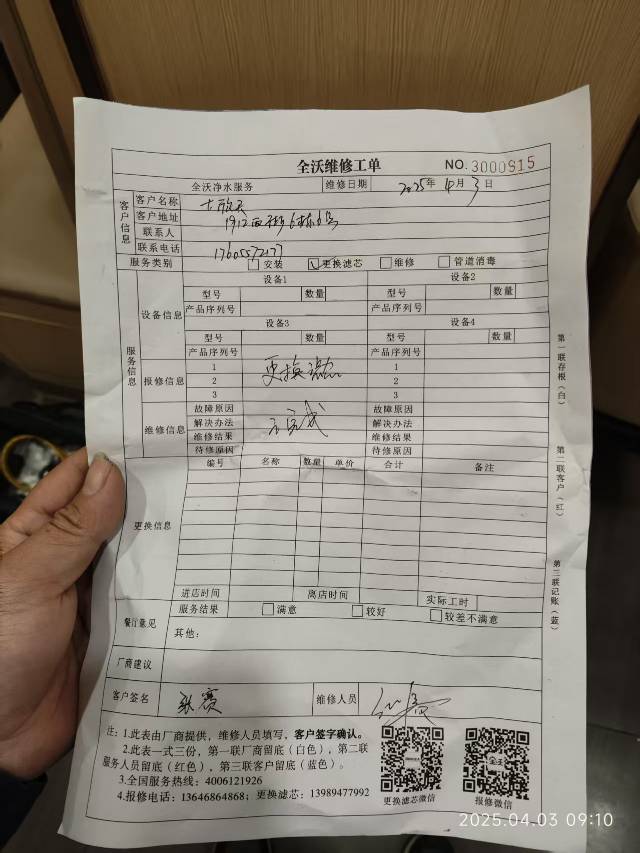 全沃维修工单
NO.3000915
全沃净水服务 维修日期 2025年4月3日
客户信息
客户名称
客户地址 1912西街6栋6号
联系人
联系电话 17605572177
服务类别 安装 更换滤芯 维修 管道消毒
服务信息
设备信息
设备1 设备2
型号 数量 型号 数量
产品序列号 产品序列号
设备3 设备4
型号 数量 型号 数量
产品序列号 产品序列号
报修信息
1 更换滤芯 1
2 2
3 3
维修信息
故障原因 故障原因
解决办法 已完成 解决办法
维修结果 维修结果
待修原因 待修原因
更换信息
编号 名称 数量 单价 合计 备注
进店时间 离店时间 实际工时
餐厅意见
服务结果 满意 较好 较差不满意
其他：
厂商建议
客户签名 张赛 维修人员
注：1.此表由厂商提供，维修人员填写，客户签字确认。
2.此表一式三份，第一联厂商留底（白色），第二联
服务人员留底（红色），第三联客户留底（蓝色）。
3.全国服务热线：4006121926
4.报修电话：13646864868；更换滤芯：13989477992
更换滤芯微信 报修微信
第一联存根（白）
第二联客户（红）
第三联记账（蓝）
2025.04.03 09:10